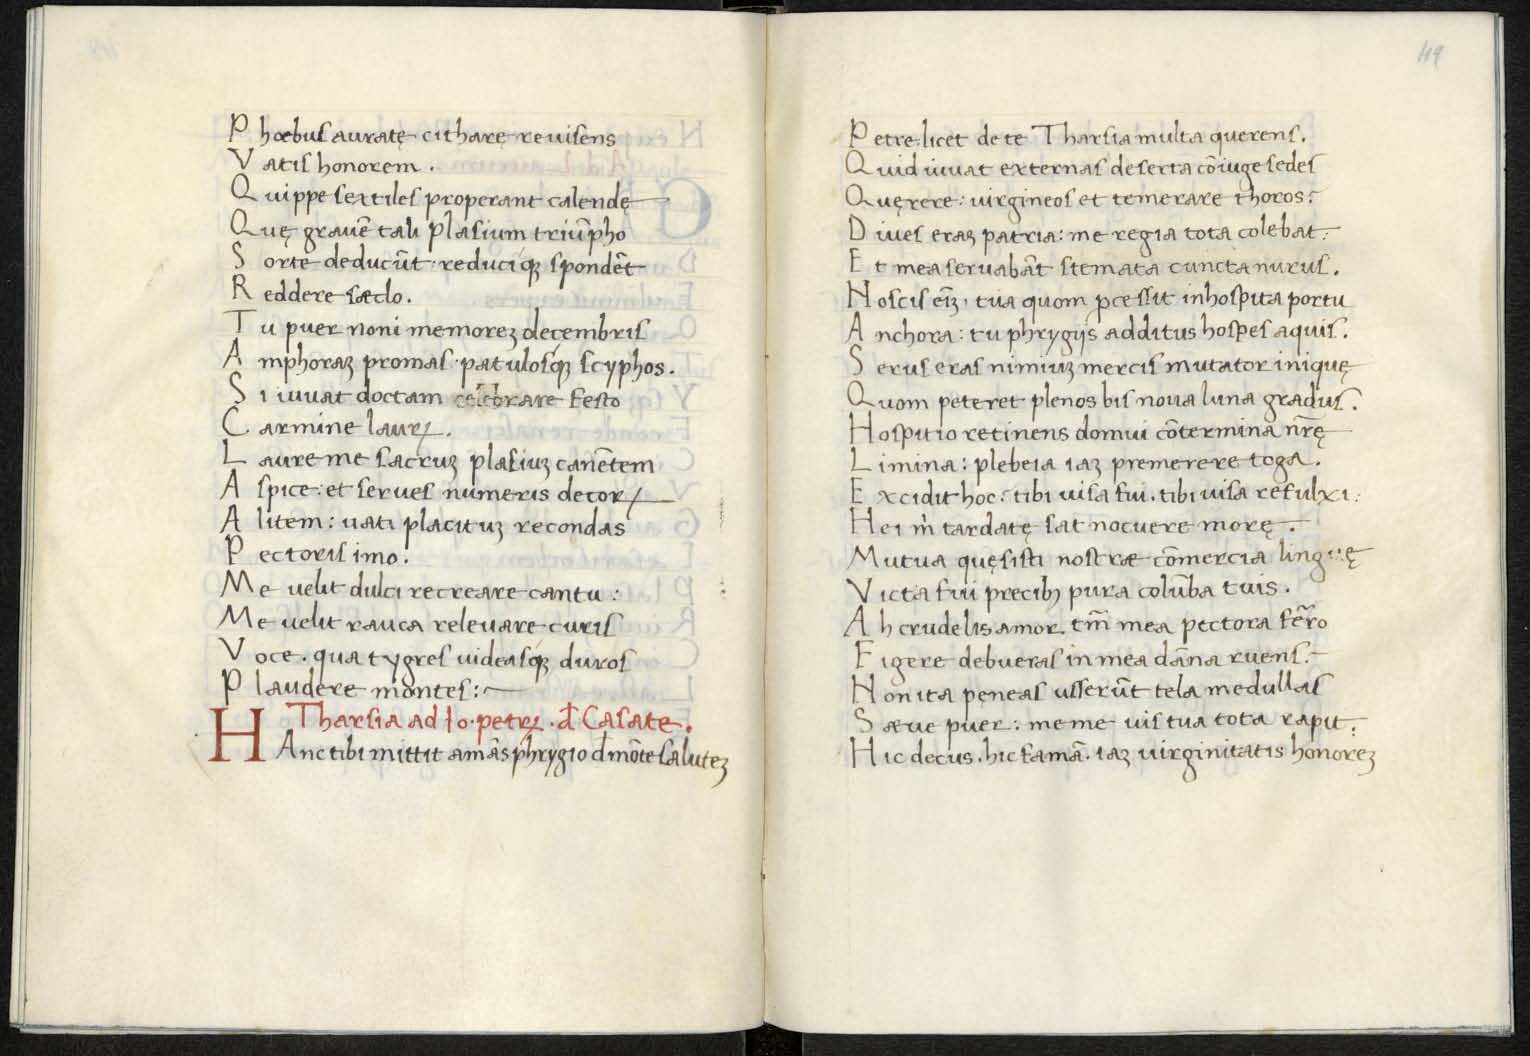 Phœbus auratę citharę revisens
Vatis honorem.
Quippe sextiles properant calendę
Quę gravē tali plasium triūpho
Sorte deducūt: reduciq; spondēt
Reddere sæclo.
Tu puer noni memorēz decembris
Amphoraz promas. patulosq; scyphos.
Si iuvat doctam celebrare festo
Carmine laurꝝ.
Laure me sacruz plasiuz canētem
Aspice: et serves numeris decorꝝ
Alitem: vati placituz recondas
Pectoris imo.
Me velit dulci recreare cantu:
Me velit rauca relevare curis
Voce. qua tygres videasq; duros
Plaudere montes:
Tharsia ad Io. petrꝝ. d̄ Casate.
HAnc tibi mittit amās phrygio d̄ mōte salutez
49
Petre. licet de te Tharsia multa querens.
Quid iuvat externas deserta cōiuge sedes
Quęrere: virgineos et temerare thoros:
Dives eraz patria: me regia tota colebat:
Et mea servabāt stemata cuncta nurus.
Noscis eīz, tua quom p̄cessit inhospita portu
Anchora: tu phrygijs additus hospes aquis.
Serus eras nimiuz mercis mutator iniquę
Quom peteret plenos bis nova luna gradus.
Hospitio retinens domui cōtermina nr̄ę
Limina: plebeia iaz premerere toga.
Excidit hoc: tibi visa fui. tibi visa refulxi:
Hei m̄ tardatę sat nocuere morę.
Mutua quęsisti nostræ cōmercia linguę
Victa fui precibꝫ pura colūba tuis.
Ah crudelis amor. tm̄ mea pectora fer̄o
Figere debueras in mea dāna ruens.
Non ita peneas usserūt tela medullas
Sæve puer: meme vis tua tota rapit:
Hic decus. hic famā. iaz virginitatis honorez